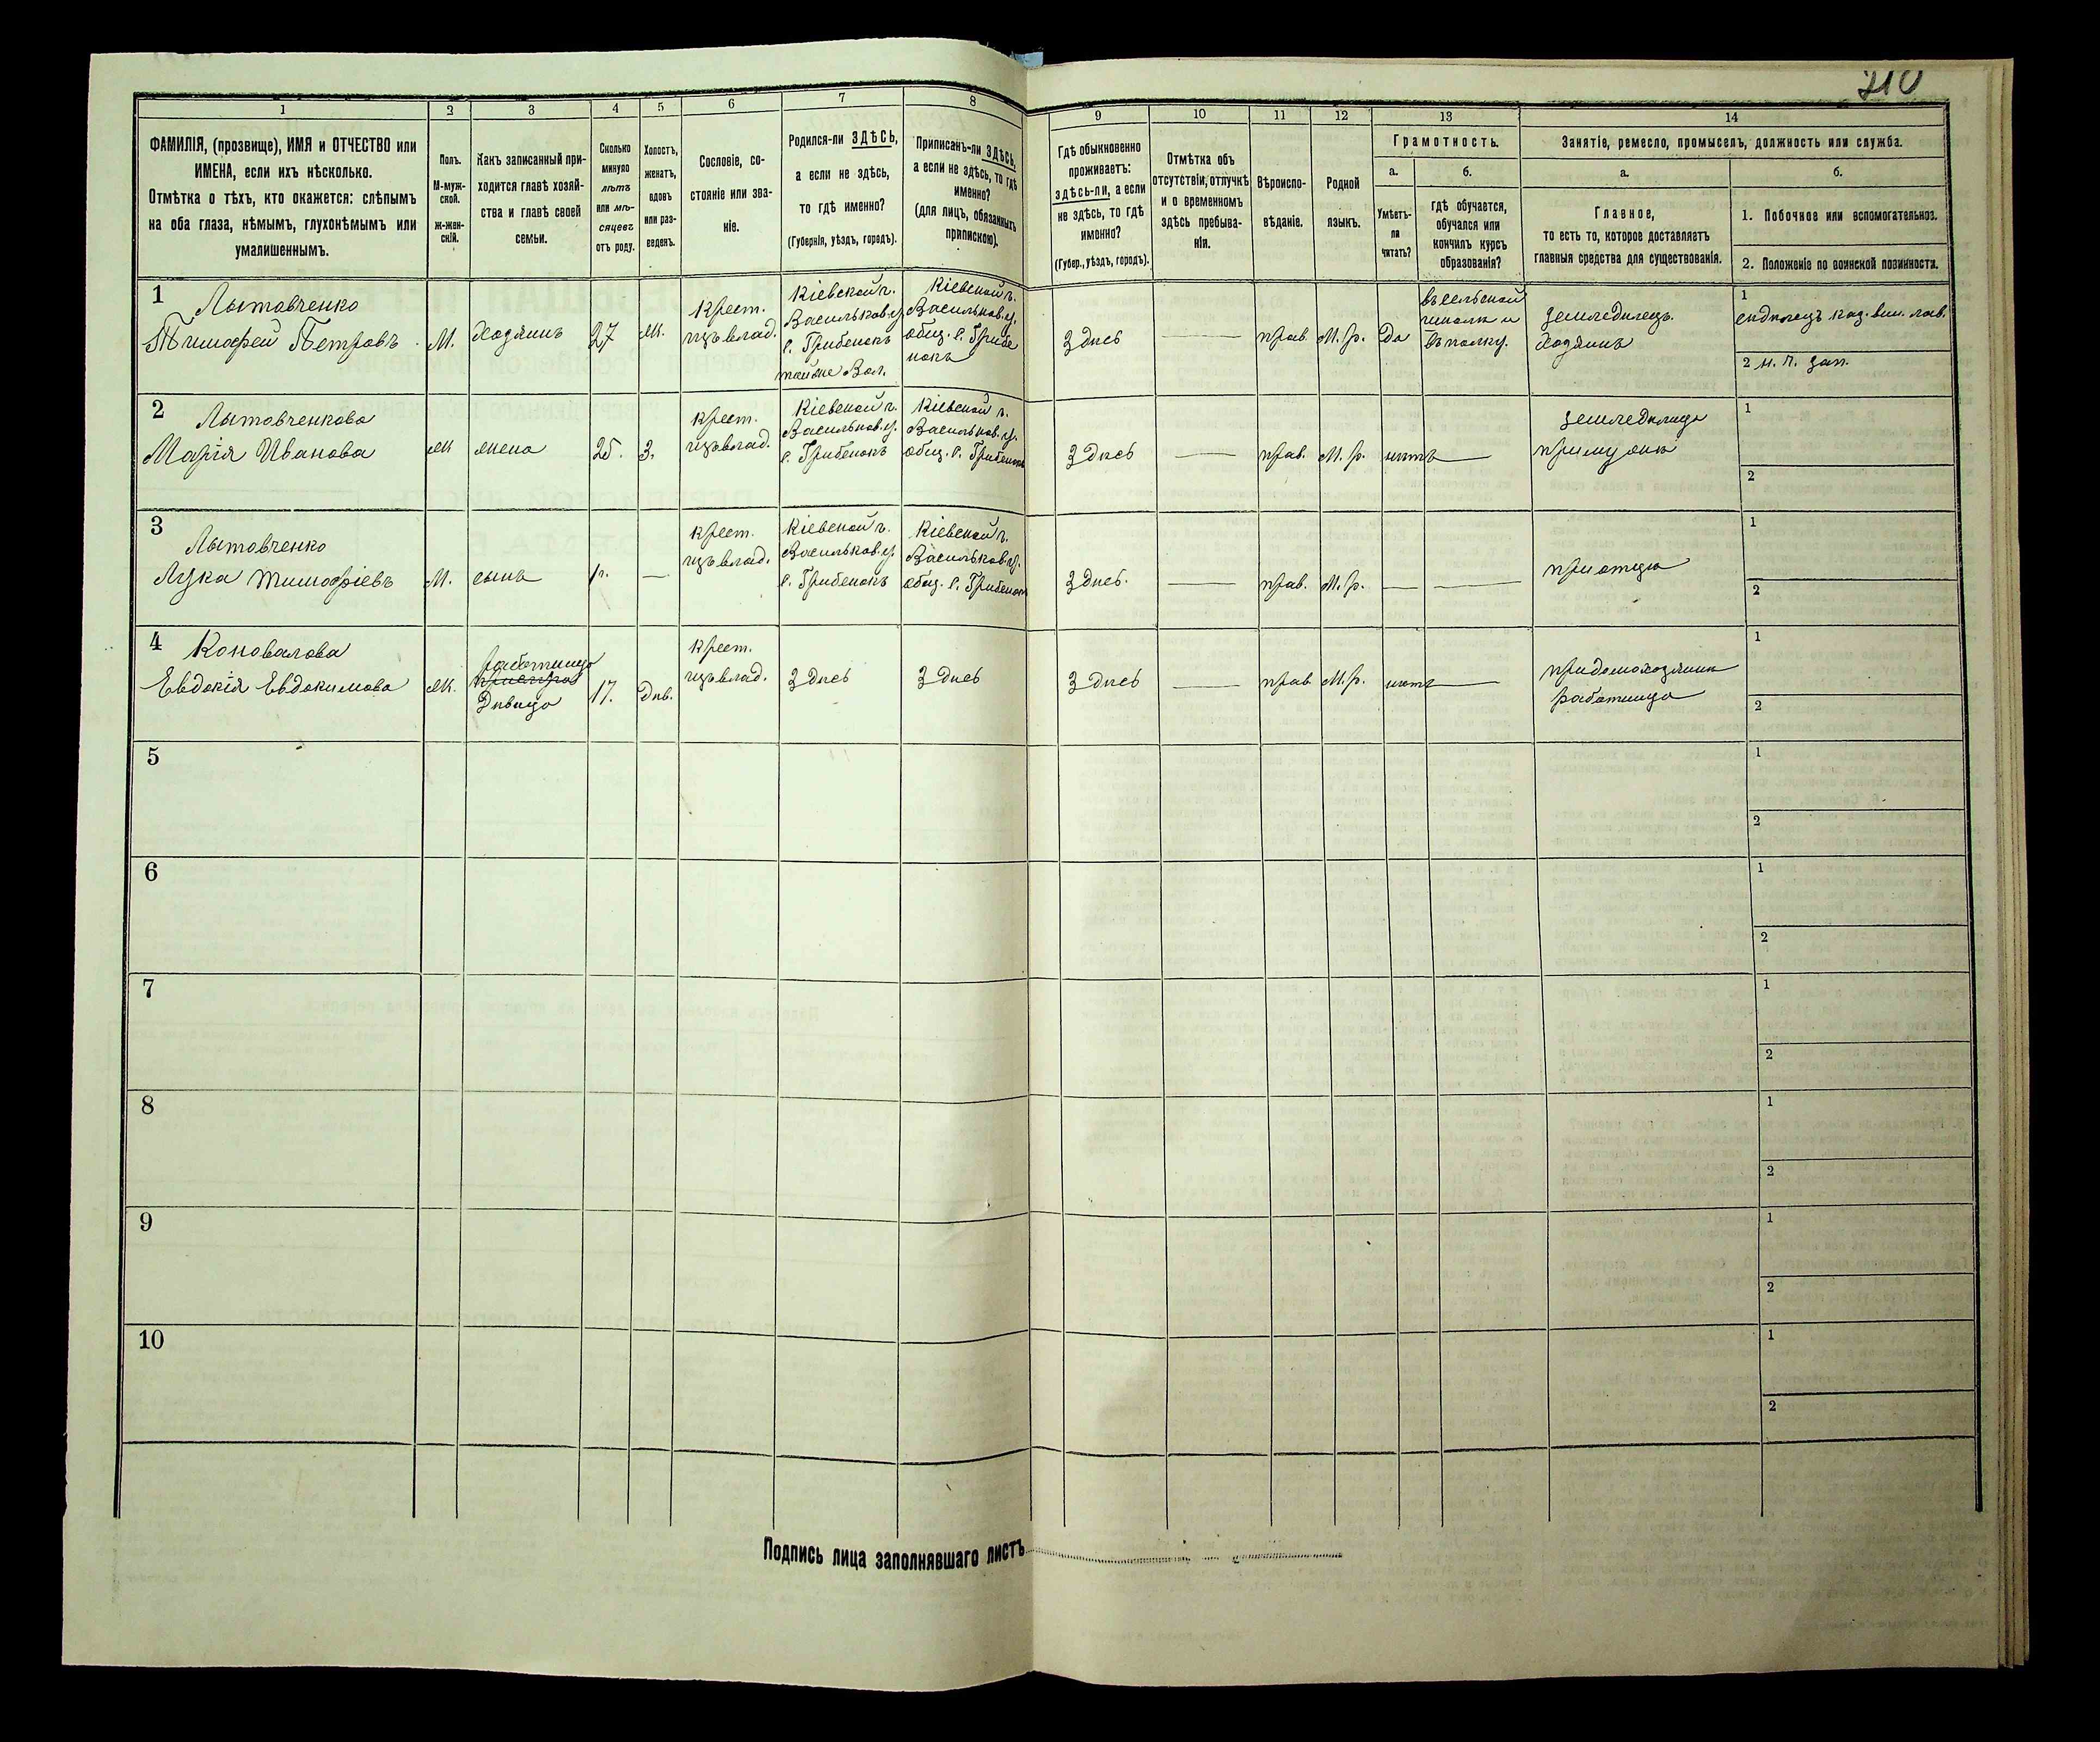 210
1
2
3
4
5
6
7
8
9
10
11
12
13
14
ФАМИЛІЯ, (прозвище), ИМЯ и ОТЧЕСТВО или
ИМЕНА, если ихъ нѣсколько.
Отмѣтка о тѣхъ, кто окажется: слѣпымъ
на оба глаза, нѣмымъ, глухонѣмымъ или
умалишеннымъ.
Полъ.
М-муж-
ской.
ж-жен-
скій.
Какъ записанный при-
ходится главѣ хозяй-
ства и главѣ своей
семьи.
Сколько
минуло
лѣтъ
или мѣ-
сяцевъ
отъ роду.
Холостъ,
женатъ,
вдовъ
или раз-
веденъ.
Сословіе, со-
стояніе или зва-
ніе.
Родился-ли ЗДѢСЬ,
а если не здѣсь,
то гдѣ именно?
(Губернія, уѣздъ, городъ).
Приписанъ-ли ЗДѢСЬ,
а если не здѣсь, то гдѣ
именно?
(для лицъ, обязанныхъ
припискою).
Гдѣ обыкновенно
проживаетъ:
ЗДѢСЬ-ЛИ, а если
не здѣсь, то гдѣ
именно?
(Губер., уѣздъ, городъ).
Отмѣтка объ
отсутствіи, отлучкѣ
и о временномъ
здѣсь пребыва-
ніи.
Вѣроиспо-
вѣданіе.
Родной
языкъ.
Грамотность.
а.
Умѣетъ-
ли
читать?
б.
гдѣ обучается,
обучался или
кончилъ курсъ
образованія?
Занятіе, ремесло, промыселъ, должность или служба.
а.
Главное,
то есть то, которое доставляетъ
главныя средства для существованія.
б.
1. Побочное или вспомогательное.
2. Положеніе по воинской повинности.
1
Лытовченко
Тимофей Петровъ
М.
хозяинъ
27
Ж.
крест.
изъ влад.
Кіевской г.
Васильков. у.
с. Гребенокъ
Кіевской г.
Васильков. у.
общ. с. Гребе
нокъ
Здѣсь
прав.
М. р.
Да
въ сельской
школѣ и
въ полку.
Земледѣлецъ.
хозяинъ
1
сидѣлецъ каз. вин. лав.
2
зап.
2
Лытовченкова
Марія Иванова
Ж
жена
25.
З.
крест.
изъ влад.
Кіевской г.
Васильков. у.
с. Гребенокъ
Кіевской г.
Васильков. у.
общ. с. Гребенокъ
Здѣсь
прав.
М. р.
нѣтъ
Земледѣлица
при мужѣ
1
2
3
Лытовченко
Лука Тимофіевъ
М.
сынъ
1 г.
крест.
изъ влад.
Кіевской г.
Васильков. у.
с. Гребенокъ
Кіевской г.
Васильков. у.
общ. с. Гребенокъ
Здѣсь.
прав.
М. р.
при отцѣ
1
2
4
Коновалова
Евдокія Евдокимова
Ж.
работница
Дѣвица
17.
Дѣв.
крест.
изъ влад.
Здѣсь
Здѣсь
Здѣсь
прав
М. р.
нѣтъ
при домохозяинѣ
работница
1
2
5
1
2
6
1
2
7
1
2
8
1
2
9
1
2
10
1
2
Подпись лица заполнявшаго листъ